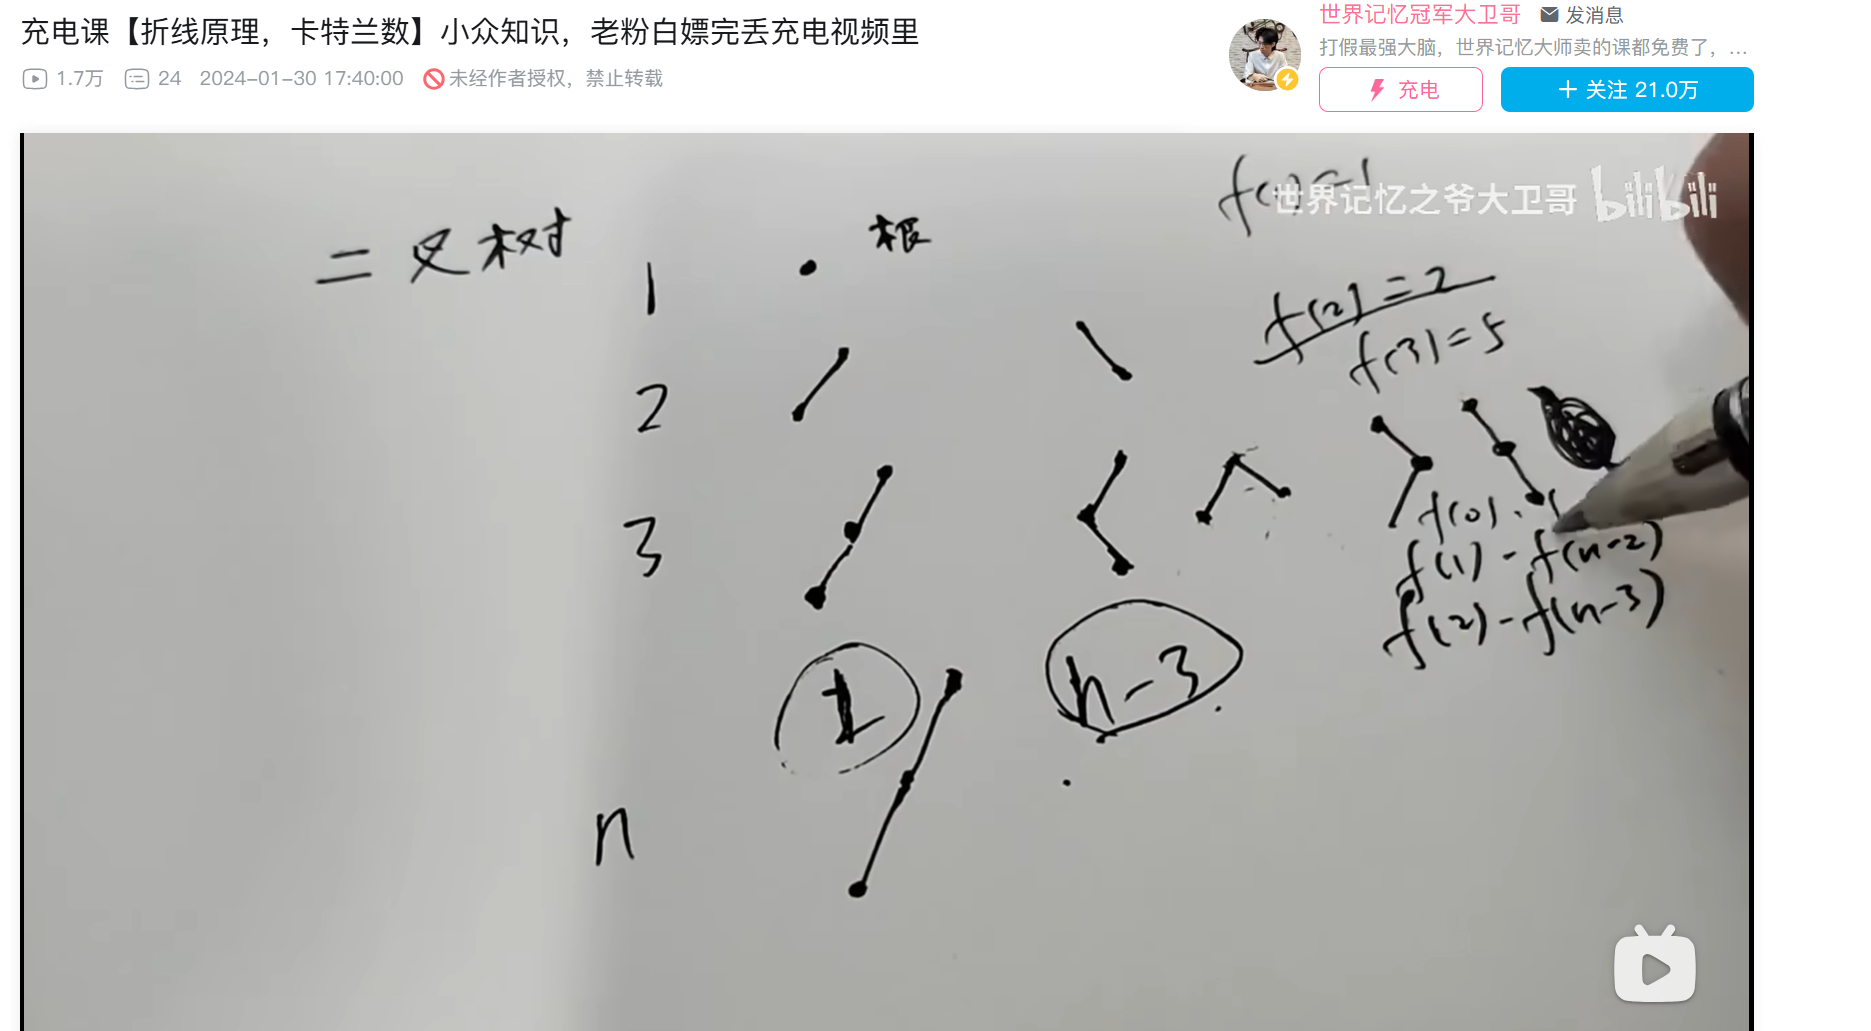 充电课【折线原理，卡特兰数】小众知识，老粉白嫖完丢充电视频里
1.7万 24 2024-01-30 17:40:00 未经作者授权，禁止转载
世界记忆冠军大卫哥 发消息
打假最强大脑，世界记忆大师卖的课都免费了，...
充电 + 关注 21.0万
世界记忆之爷大卫哥 bilibili
二叉树
1 根
2
f(2)=2
f(3)=5
3
f(0).
f(1)-f(n-2)
f(2)-f(n-3)
n-3
n